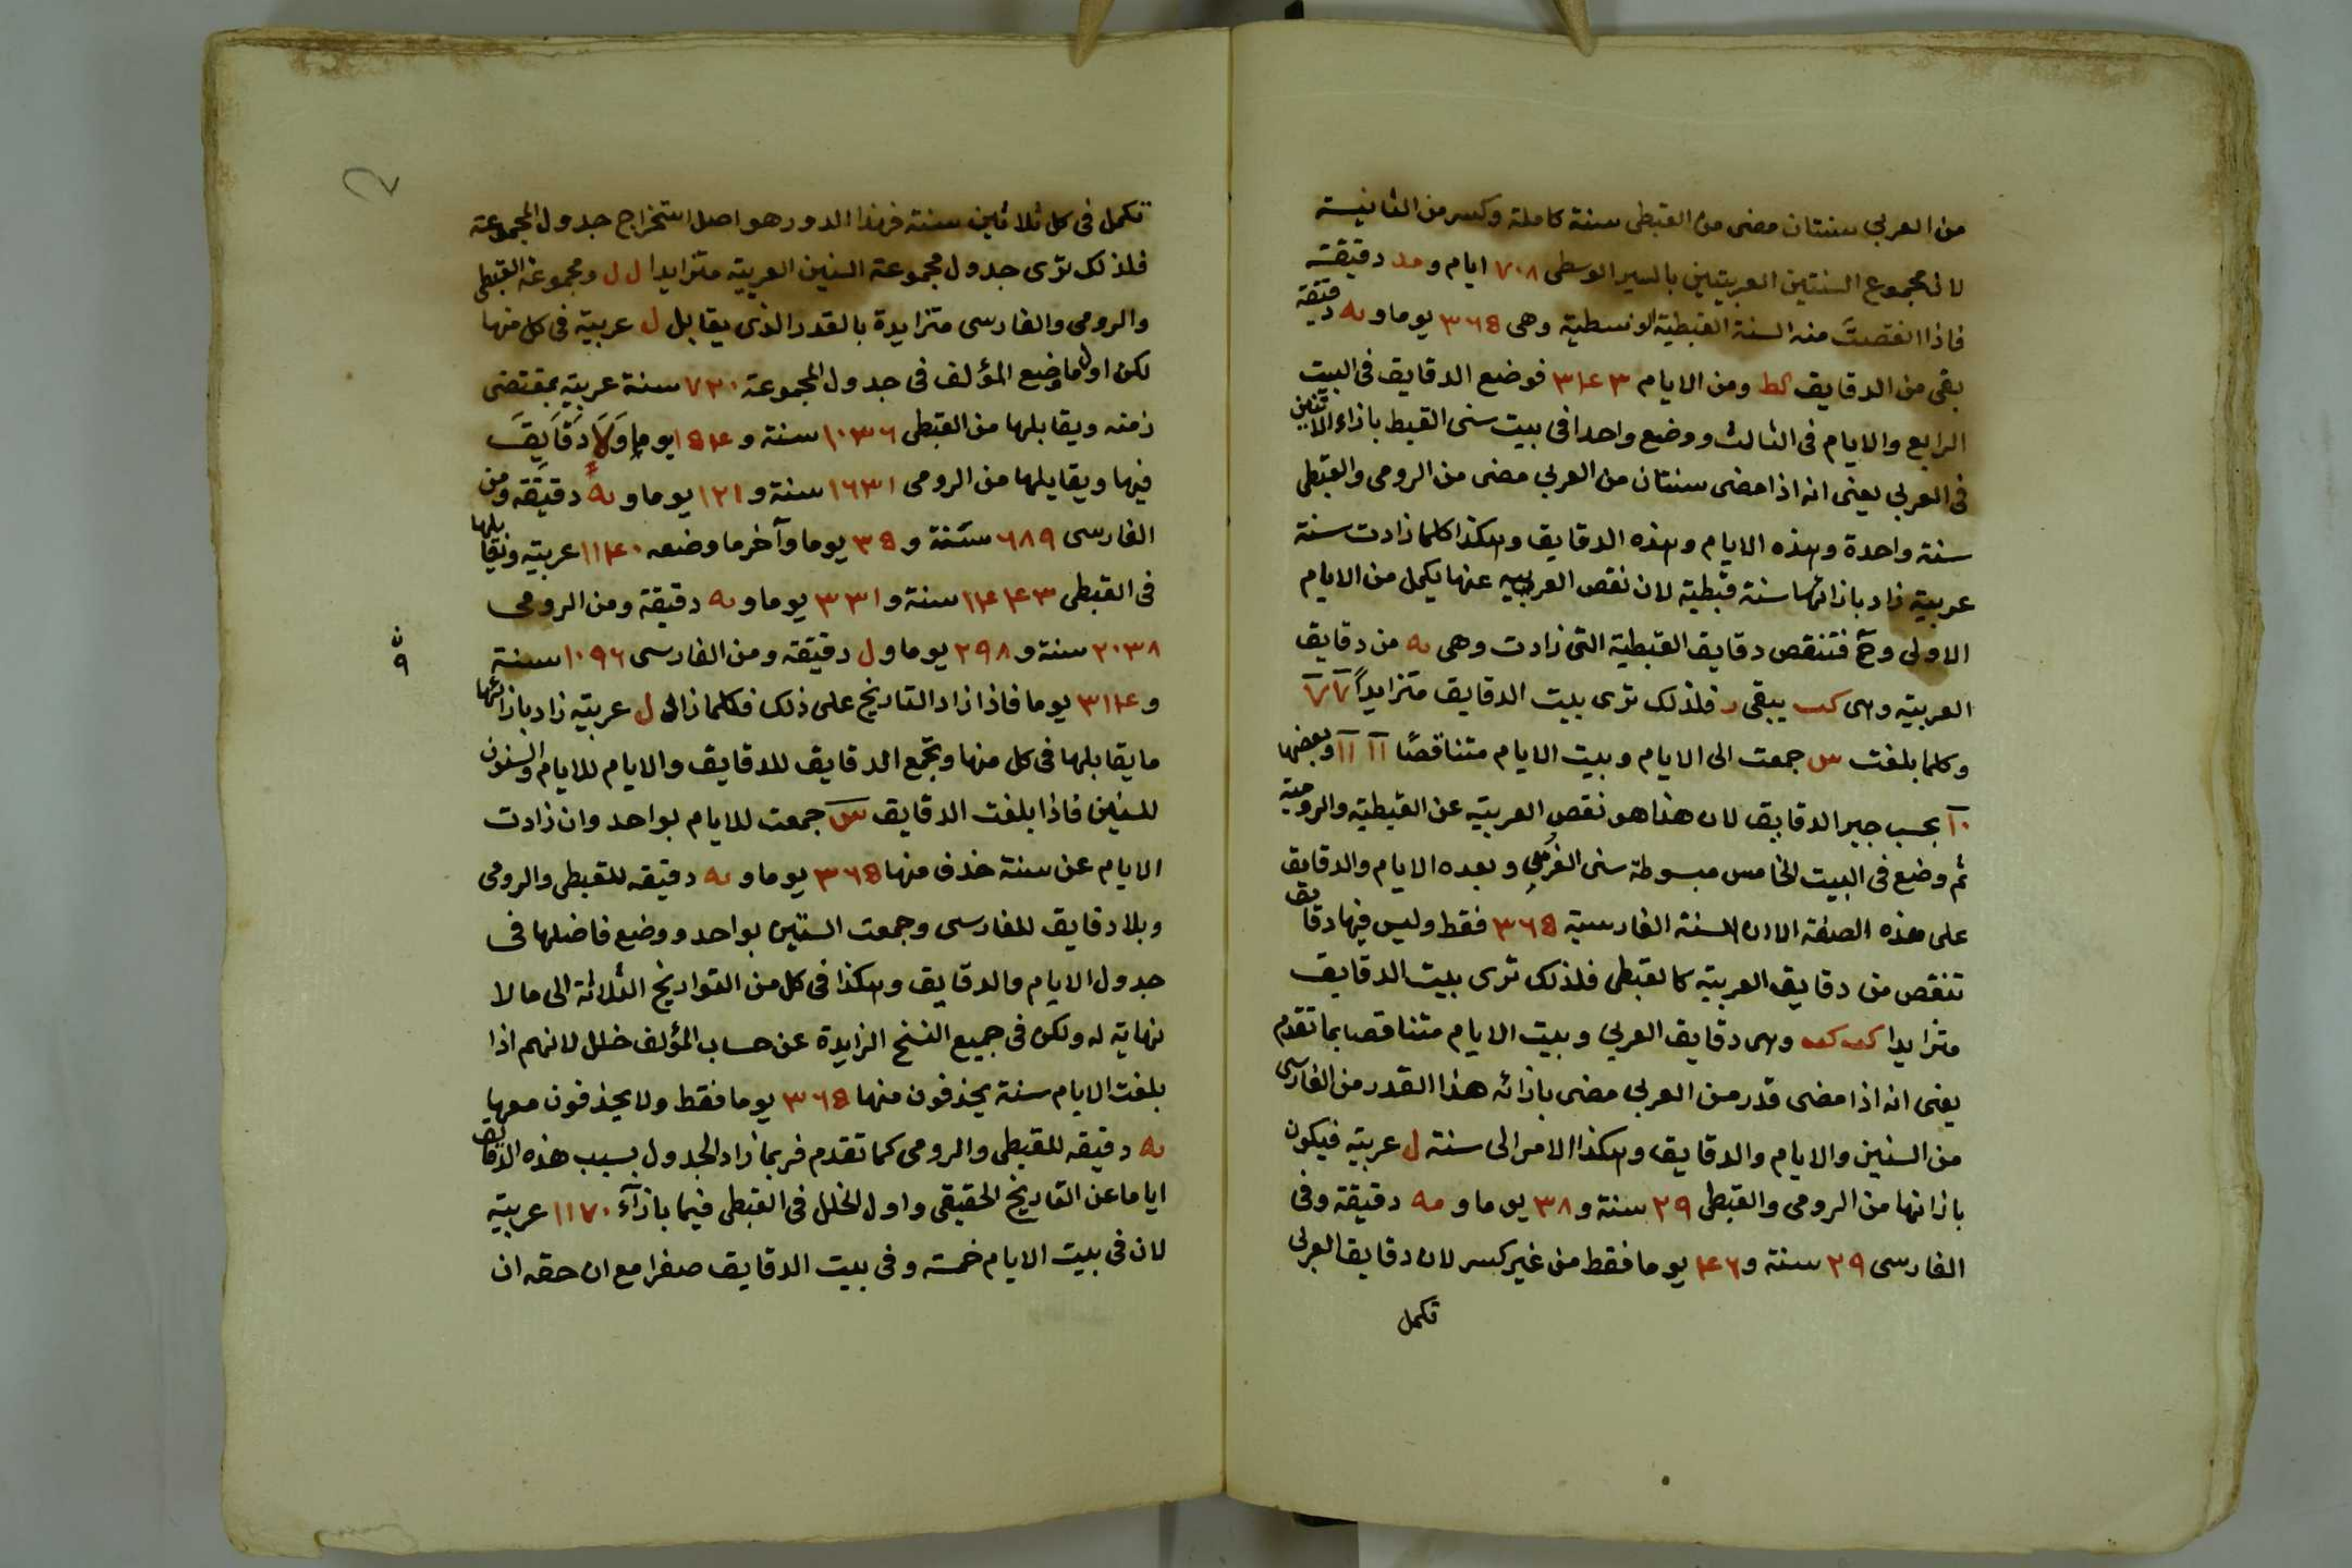 من العربي سنتان مضى من القبطى سنة كاملة وكسر من الثانية
لان مجموع السنتين العربيتين بالسير الوسطى ٧٠٨ ايام و مد دقيقة
فاذا انقصت منه السنة القبطية الوسطية وهى ٣٦٥ يوما و ىه دقيقة
بقى من الدقايق كط ومن الايام ٣٤٣ فوضع الدقايق فى البيت
الرابع والايام فى الثالث ووضع واحدا فى بيت سنى القبط بازاء الاثنين
فى العربي يعنى انه اذا مضى سنتان من العربي مضى من الرومى والقبطى
سنة واحدة وهذه الايام وهذه الدقايق وهكذا كلما زادت سنة
عربية زاد بازائها سنة قبطية لان نقص العربية عنها يكمل من الايام
الاولى وح فتنقص دقايق القبطية التى زادت وهى ىه من دقايق
العربية وهى كب يبقى ز فلذلك ترى بيت الدقايق متزايداً ٧ ٧
وكلما بلغت س جمعت الى الايام وبيت الايام متناقصًا ١١ ١١ وبعضها
١٠ بحسب جبر الدقايق لان هذا هو نقص العربية عن القبطية والرومية
ثم وضع فى البيت الخامس مبسوطة سنى الفرس وبعده الايام والدقايق
على هذه الصفة الا ان السنة الفارسية ٣٦٥ فقط وليس فيها دقايق
تنقص من دقايق العربية كالقبطى فلذلك ترى بيت الدقايق
متزايدا كب كب وهى دقايق العربي وبيت الايام متناقصا بما تقدم
يعنى انه اذا مضى قدر من العربي مضى بازائه هذا القدر من الفارسى
من السنين والايام والدقايق وهكذا الامر الى سنة ل عربية فيكون
بازائها من الرومى والقبطى ٢٩ سنة و ٣٨ يوما و مه دقيقة وفى
الفارسى ٢٩ سنة و ٤٦ يوما فقط من غير كسر لان دقايق العربي
تكمل
تكمل فى كل ثلاثين سنة فهذا الدور هو اصل استخراج جدول المجموعة
فلذلك ترى جدول مجموعة السنين العربية متزايدا ل ل ومجموعة القبطى
والرومى والفارسى متزايدة بالقدر الذى يقابل ل عربية فى كل منها
لكن اول ما وضع المؤلف فى جدول المجموعة ٧٢٠ سنة عربية بمقتضى
زمنه ويقابلها من القبطى ١٠٣٦ سنة و ١٥٤ يوما ولا دقايق
فيها ويقابلها من الرومى ١٦٣١ سنة و ١٢١ يوما و ىه دقيقة ومن
الفارسى ٦٨٩ سنة و ٣٥ يوما وآخر ما وضعه ١١٤٠ عربية ويقابلها
فى القبطى ١٤٤٣ سنة و ٣٣١ يوما و ىه دقيقة ومن الرومى
٢٠٣٨ سنة و ٢٩٨ يوما و ل دقيقة ومن الفارسى ١٠٩٦ سنة
و ٣١٤ يوما فاذا زاد التاريخ على ذلك فكلما زاد ل عربية زاد بازائها
ما يقابلها فى كل منها وتجمع الدقايق للدقايق والايام للايام والسنون
للسنين فاذا بلغت الدقايق س جمعت للايام بواحد وان زادت
الايام عن سنة حذف منها ٣٦٥ يوما و ىه دقيقه للقبطى والرومى
وبلا دقايق للفارسى وجمعت السنين بواحد ووضع فاضلها فى
جدول الايام والدقايق وهكذا فى كل من التواريخ الثلاثة الى ما لا
نهاية له ولكن فى جميع النسخ الزايدة عن حساب المؤلف خلل لانهم اذا
بلغت الايام سنة يحذفون منها ٣٦٥ يوما فقط ولا يحذفون معها
ىه دقيقه للقبطى والرومى كما تقدم فربما زاد الجدول بسبب هذه الدقايق
اياما عن التاريخ الحقيقى واول الخلل فى القبطى فيما بازآء ١١٧٠ عربية
لان فى بيت الايام خمسة وفى بيت الدقايق صفرا مع ان حقه ان